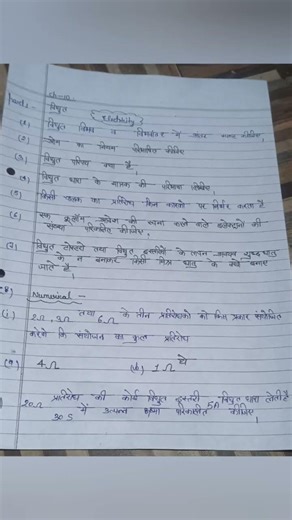 Ch-12
Part - विद्युत (Electricity)
(1) विद्युत विभव व विभवांतर में अंतर स्पष्ट कीजिए,
(2) ओम का नियम परिभाषित कीजिए
(3) विद्युत परिपथ क्या है।
(4) विद्युत धारा के मात्रक की परिभाषा लिखिए।
(5) किसी चालक का प्रतिरोध किन कारकों पर निर्भर करता है
(6) एक कूलॉम आवेश की रचना करने वाले इलेक्ट्रॉनों की
संख्या परिकलित कीजिए,
(7) विद्युत टोस्टरों तथा विद्युत इस्तरियों के तापन अवयव शुद्ध धातु
के न बनाकर किसी मिश्र धातु के क्यों बनाए
जाते हैं।
(B) Numerical -
(i) 2Ω, 3Ω तथा 6Ω के तीन प्रतिरोधकों को किस प्रकार संयोजित
करोगे कि संयोजन का कुल प्रतिरोध
(a) 4Ω (b) 1Ω हो
20Ω प्रतिरोध की कोई विद्युत इस्तरी 5A विद्युत धारा लेती है
30 S में उत्पन्न ऊष्मा परिकलित कीजिए।